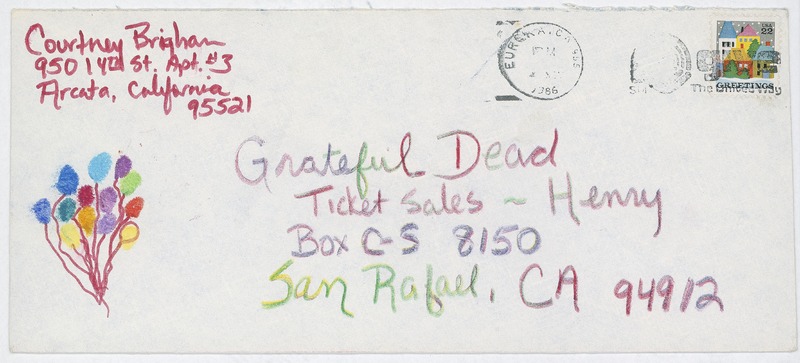 Courtney Brigham
950 14th St. Apt. #3
Arcata, California
95521
EUREKA, CA 955
PM
1986
USA
22
GREETINGS
The United Way
Grateful Dead
Ticket Sales ~ Henry
Box C-S 8150
San Rafael, CA 94912